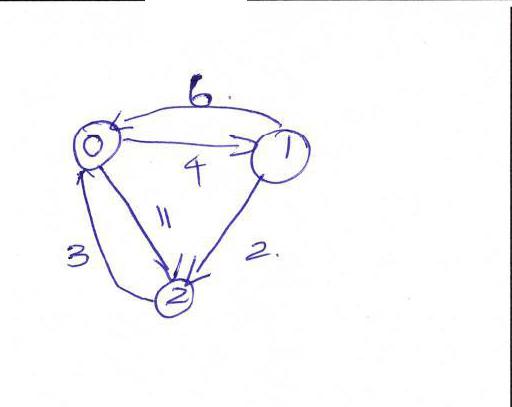 6.
0
1
4
11
3
2.
2